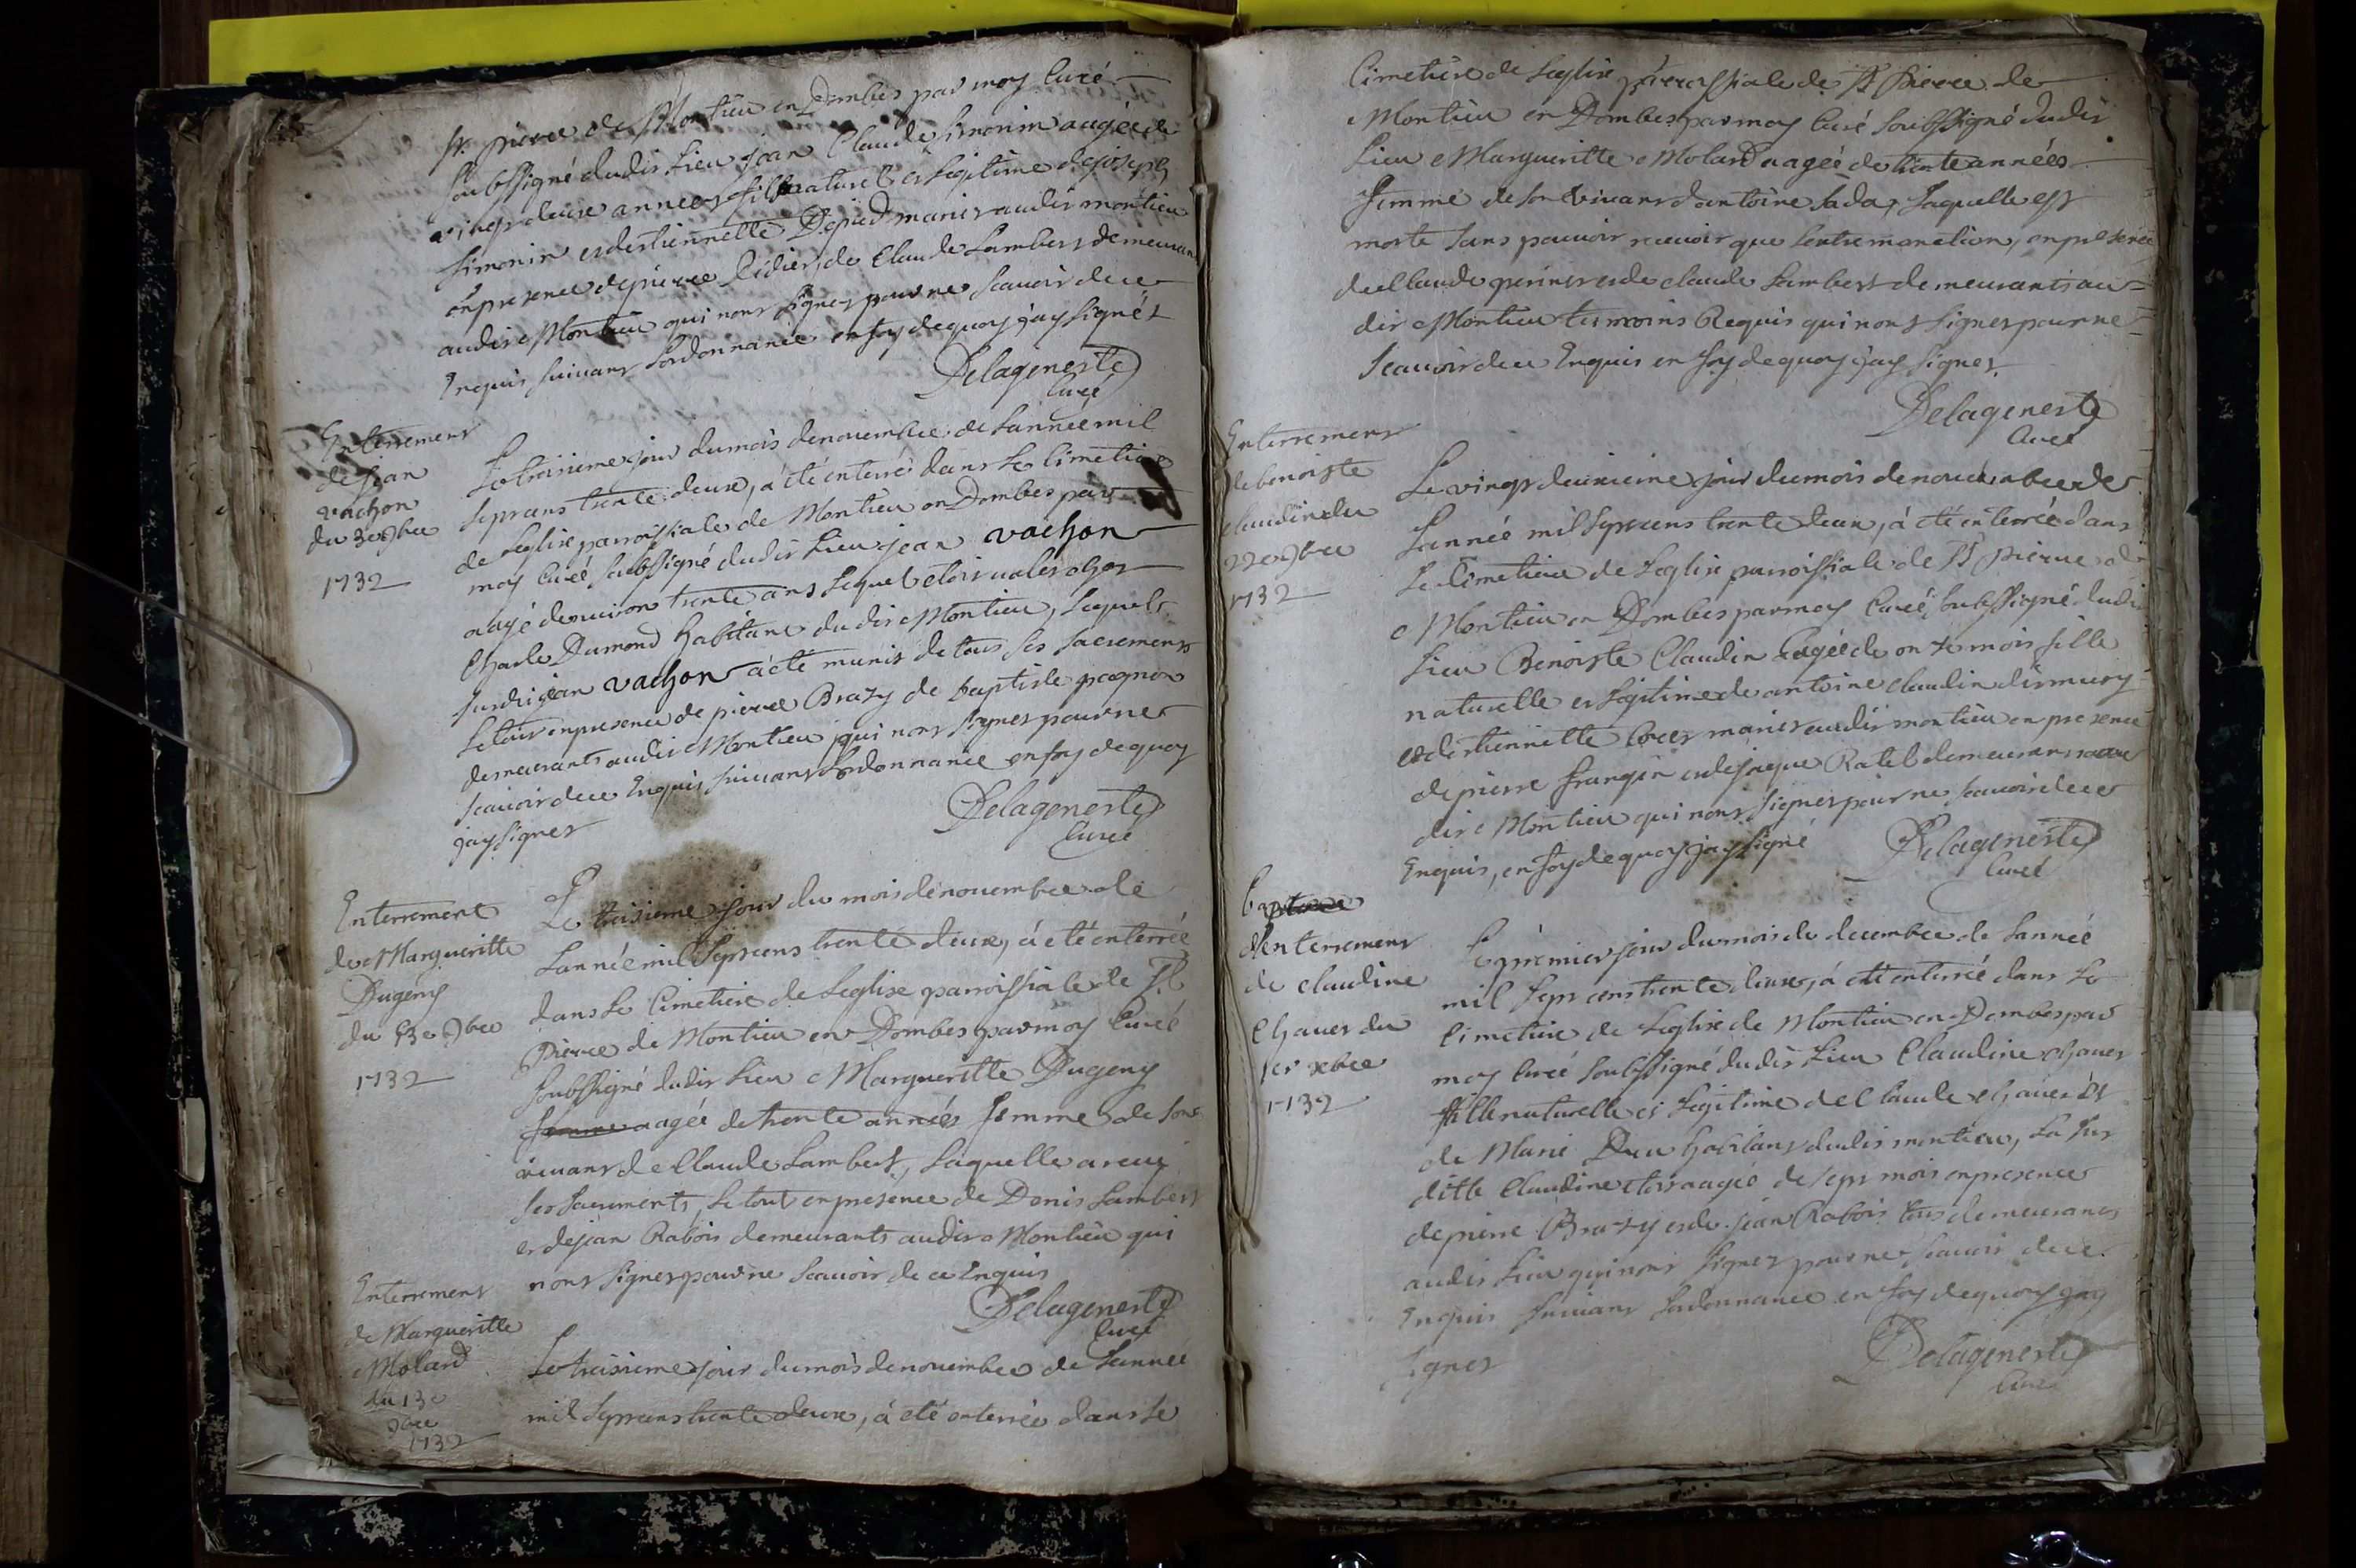 St. pierre de Montieu en Dombes par moy Curé
soubssigné dudit Lieu Joan Claude Simonin aagée de
vingt deux années fils naturel et Legitime de joseph
Simonin et destiennette Depied mariés audit montieu
en presence de pierre Cidier, de Claude Lambert demeurant
audit Montieu qui nont signer pour ne scauoir de ce
Enquis suiuant Lordonnance en foy dequoy jay signés
Delageneste
Curé
Enterrement
de jean
vachon
du 3e 9bre
1732
Le troisieme jour du mois de nouembre de Lannée mil
sept cens trente deux, á été enterré dans Le Cimetiere
de Leglise parroissiale de Montieu en Dombes par
moy Curé soubssigné dudit Lieu jean vachon
aagé denuiron trente ans Lequel etoit valet chez
Charle Dumond habitant dudit Montieu, Lequel
susdit jean vachon á été munis de tous ses sacrements
Le tout en presence de pierre Brazy de baptiste pagnon
demeurants audit Montieu qui nont signer pour ne
scauoir de ce Enquis, suiuant Lordonnance en foy de quoy
jay signer
Delageneste
Curé
Enterrement
de Margueritte
Dugeny
du 13e 9bre
1732
Le treisieme jour du mois de nouembre de
Lannée mil sept cens trente deux, á eté enterrée
dans Le Cimetiere de Leglise parroissiale de St
Pierre de Montieu en Dombes par moy Curé
soubssigné dudit Lieu Margueritte Dugeny
femme aagée de trente années femme de son
viuant de Claude Lambert, Laquelle a receu
ses sacrements, Le tout en presence de Denis Lambert
et de jean Rabois demeurants audit Montieu qui
nont signer pour ne scauoir de ce Enquis
Delageneste
Curé
Enterrement
de Margueritte
Molard
du 13e
9bre
1732
Le treisieme jour du mois de nouembre de Lannée
mil sept cens trente deux, á eté enterrée dans Le
Cimetiere de Leglise parroissiale de St Pierre de
Montieu en Dombes par moy Curé soubssigné dudit
Lieu Margueritte Molard aagée de trente années
femme de son viuant dantoine Lada, Laquelle est
morte sans pouuoir receuoir que Lextremonction, en presence
de Claude perinet et de claude Lambert demeurants au
dit Montieu temoins Requis qui nont signer pour ne
scauoir de ce Enquis en foy de quoy jay signer
Delageneste
Curé
Enterrement
de benoiste
claudin du
22e 9bre
1732
Le vingt deuxieme jour du mois de nouembre de
Lannée mil sept cens trente deux, á eté enterrée dans
Le Cimetiere de Leglise parroissiale de St pierre de
Montieu en Dombes par moy Curé soubssigné dudit
Lieu Benoiste Claudin aagée de onze mois fille
naturelle et Legitime de antoine claudin dit mury
et destiennette mariés audit montieu en presence
de pierre frangin et de jaque Ratel demeurants au
dit Montieu qui nont signer pour ne scauoir de ce
Enquis, en foy de quoy jay signé
Delageneste
Curé
bapteme
denterrement
de claudine
Chauet du
1er xbre
1732
Le premier jour du mois de decembre de Lannée
mil sept cens trente deux, á eté enterrée dans Le
Cimetiere de Leglise de Montieu en Dombes par
moy Curé soubssigné dudit Lieu Claudine chauet
fille naturelle et Legitime de Claude chauet et
de Marie Dieu habitans dudit montieu, La sus
ditte Claudine etoit aagée de sept mois en presence
de pierre Brazy et de jean Rabois tous demeurants
audit Lieu qui nont signer pour ne scauoir de ce
Enquis suiuant Lordonnance en foy de quoy jay
signer
Delageneste
Curé